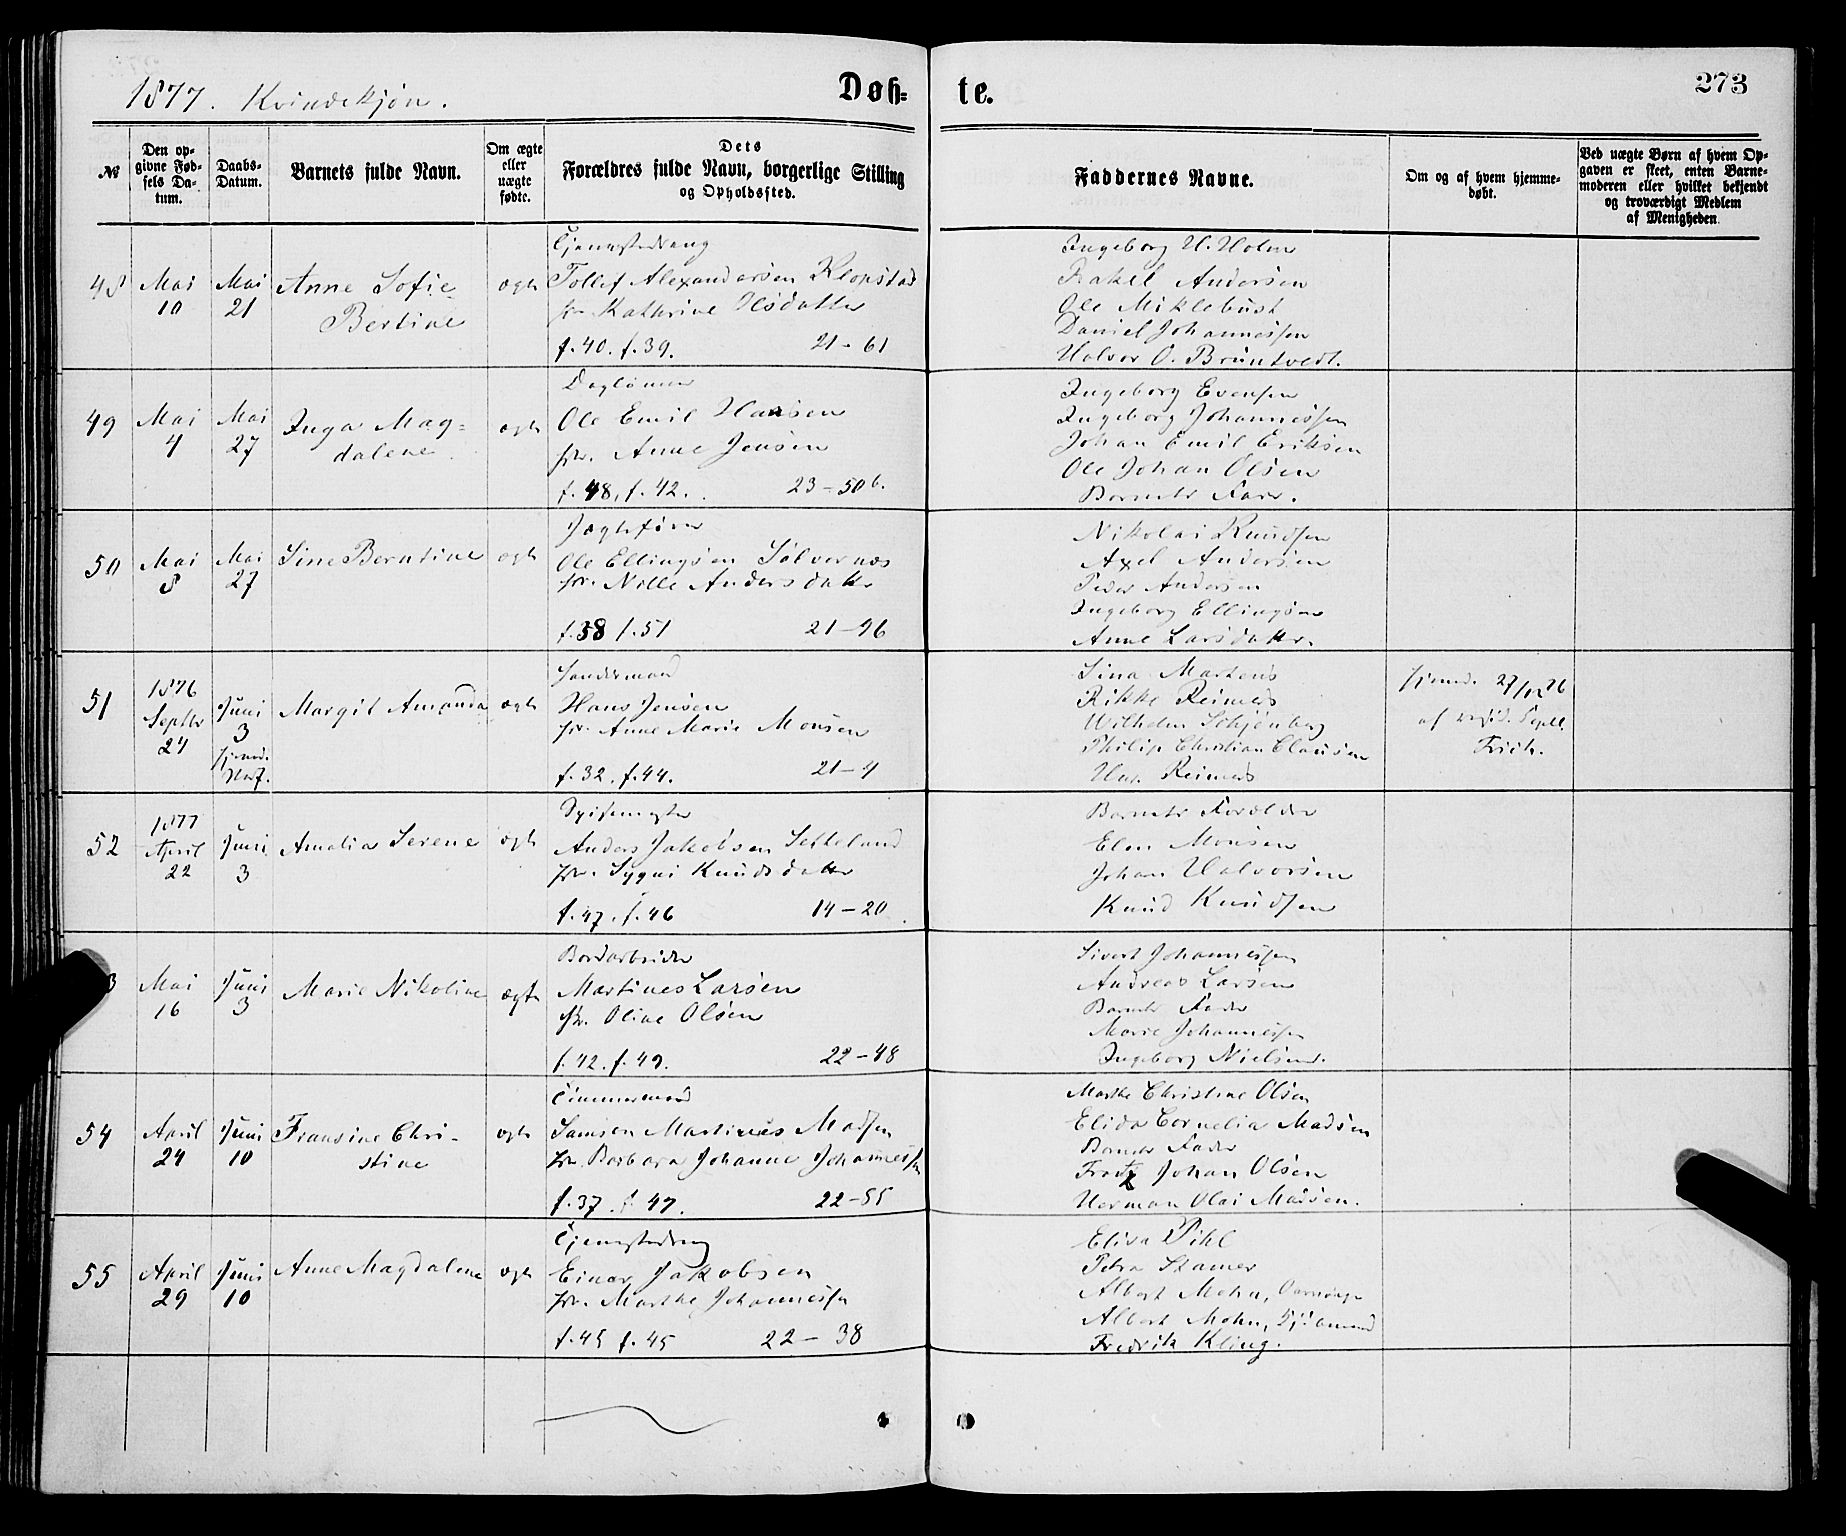 1877. Kvindekjøn.
Døb=
te.
273
№
Den op-
givne Fød-
sels Da-
tum.
Daabs-
Datum.
Barnets fulde Navn.
Om ægte
eller
uægte
fødte.
Dets
Forældres fulde Navn, borgerlige Stilling
og Opholdssted.
Faddernes Navne.
Om og af hvem hjemme-
døbt.
Ved uægte Børn af hvem Op-
gaven er skeet, enten Barne-
moderen eller hvilket bekjendt
og troværdigt Medlem
af Menigheden.
48
Mai
10
Mai
21
Anne Sofie
Bertine
ægte
Tjenestedreng
Tollef Alexandersen Klopstad
Kathrine Olsdatter
f. 40. f. 39. 21-61
Ingeborg H. Holm
Rakel Andersen
Ole Miklebust
Daniel Johannessen
Halvor O. Bruntvedt.
49
Mai
4
Mai
27
Inga Mag=
dalene
ægte
Dagløner
Ole Emil Hansen
Anne Jensen
f. 48, f. 42. 23-50 b.
Ingeborg Evensen
Ingeborg Johannessen
Johan Emil Eriksen
Ole Johan Olsen
Barnets Fader.
50
Mai
8
Mai
27
Sine Berntine
ægte
Jægtefører
Ole Ellingsen Sølvernæs
Nille Andersdatter
f. 38 f. 51 21-96
Nikolai Knudsen
Axel Andersen
Peder Andersen
Ingeborg Ellingsen
Anne Larsdatter.
51
1876
Septbr
24
Juni
3
hjemd.
Margit Amanda
ægte
Hans Jensen
Anne Marie Monsen
f. 32. f. 44. 21-4
Sina Martens
Rikke Reimers
Wilhelm Schjønberg
Philip Christian Clausen
Reimers
hjemd. 27/12 76
af resid. Capell.
Frich.
52
1877
April
22
Juni
3
Amalia Serene
ægte
Anders Jakobsen Sætteland
Sygni Knudsdatter
f. 47. f. 46 14-20
Barnets Forældre
Elen Monsen
Johan Halvorsen
Knud Knudsen
3
Mai
16
Juni
3
Marie Nikoline
ægte
Bordarbeider
Martines Larsen
Oline Olsen
f. 42. f. 49. 22-48
Sivert Johannessen
Andreas Larsen
Barnets Fader
Marie Johannessen
Ingeborg Nielsen.
54
April
24
Juni
10
Fransine Chri-
stine
ægte
Tømmermand
Samson Martinus Madsen
Barbara Johanne Johannessen
f. 37. f. 47. 22-55
Marthe Christine Olsen
Elida Cornelia Madsen
Barnets Fader
Frantz Johan Olsen
Herman Olai Madsen.
55
April
29
Juni
10
Anne Magdalene
ægte
Tjenestedreng
Einar Jakobsen
Marthe Johannessen
f. 45 f. 45 22-38
Elisa Pihl
Petra Stamer
Albert Mohn,
Albert Mohn,
Fredrik Kling.